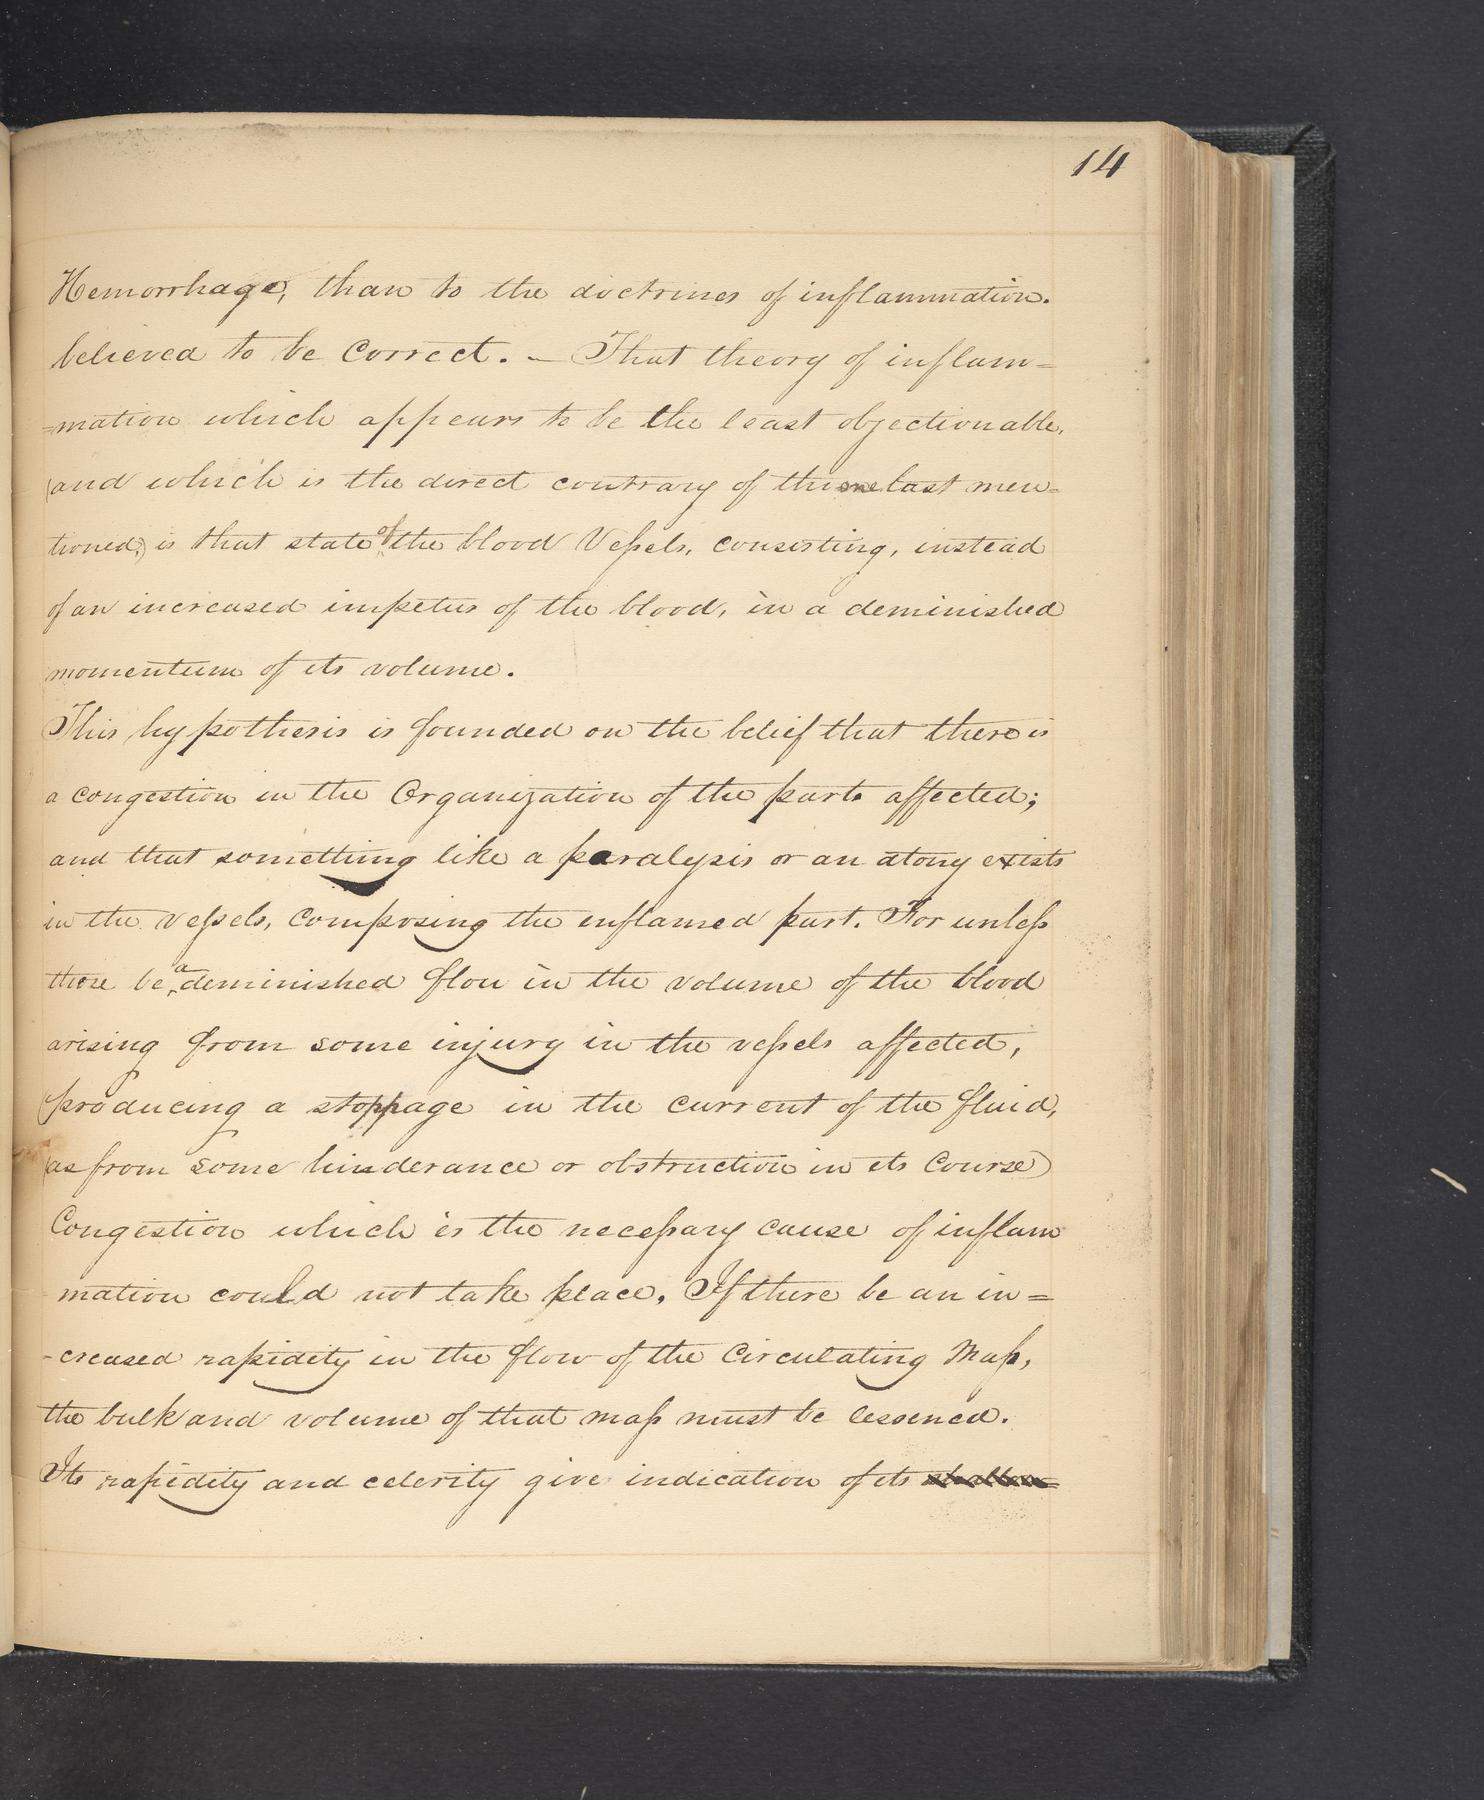 14
Hemorrhage, than to the doctrines of inflammation.
believed to be Correct. — That theory of inflam=
=mation which appears to be the least objectionable,
(and which is the direct contrary of the one last men=
tioned;) is that state of the blood Vessels, consisting, instead
of an increased impetus of the blood, in a deminished
momentum of its volume.
This hypothesis is founded on the belief that there is
a congestion in the Organization of the parts affected;
and that something like a paralysis or an atony exists
in the vessels, Composing the inflamed part. For unless
there be a deminished flow in the volume of the blood
arising from some injury in the vessels affected,
(producing a stoppage in the current of the fluid,
(as from some hinderance or obstruction in its Course)
Congestion which is the necessary cause of inflam
mation could not take place. If there be an in=
-creased rapidity in the flow of the Circulating Mass,
the bulk and volume of that mass must be lessened.
Its rapidity and celerity give indication of its